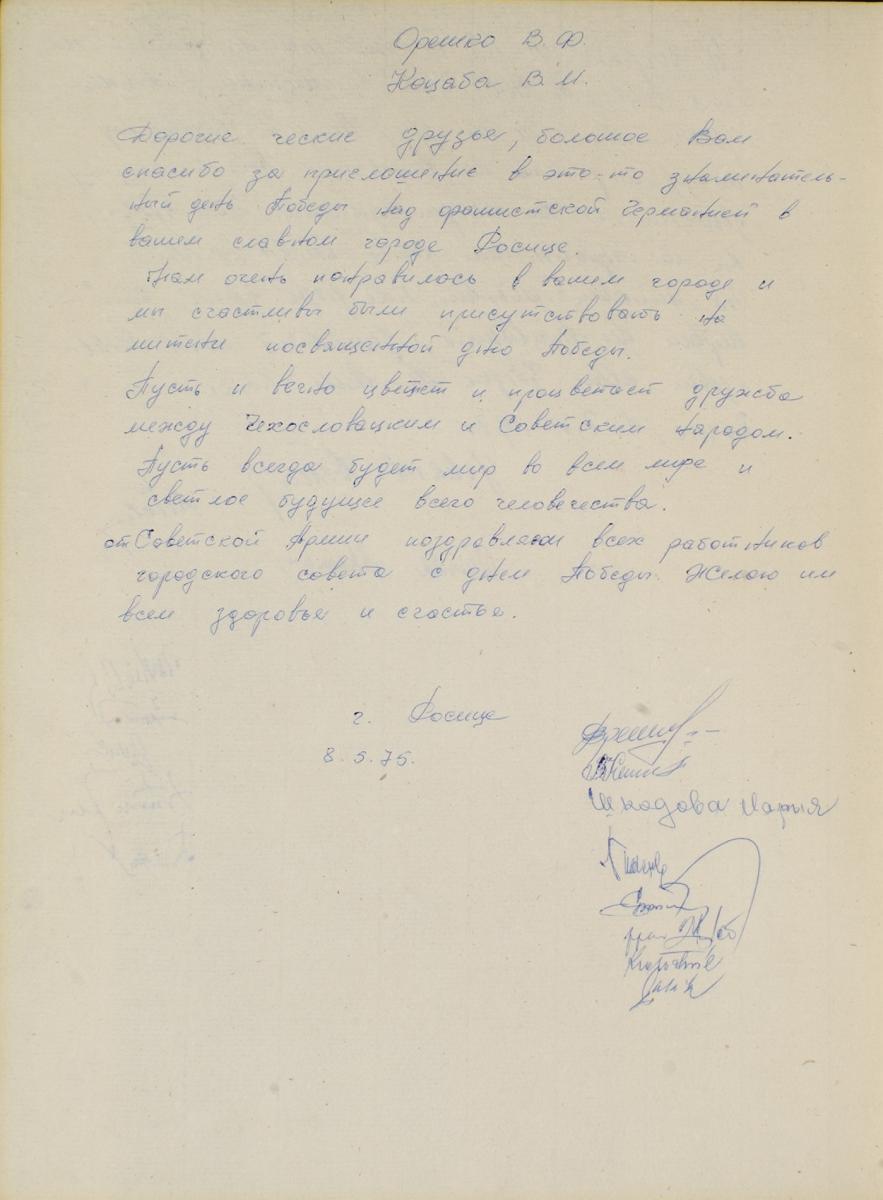 Орешко В. Ф.
Коцаба В. М.
Дорогие ческие друзья, большое Вам
спасибо за приглашение в это-то знаминатель-
ный день Победы над фашистской Германией в
вашем славном городе Росице.
Нам очень понравилось в вашем городе и
мы счастливы были присутствовать на
митинги посвященной дню Победы.
Пусть и вечно цветет и процветает дружба
между Чехословацким и Советским народом.
Пусть всегда будет мир во всем мире и
светлое будущее всего человечества.
от Советской Армии поздравляем всех работников
городского совета с днем Победы. Желаю им
всем здоровья и счастья.
г. Росице
8.5.75.
Шкадова Марыя